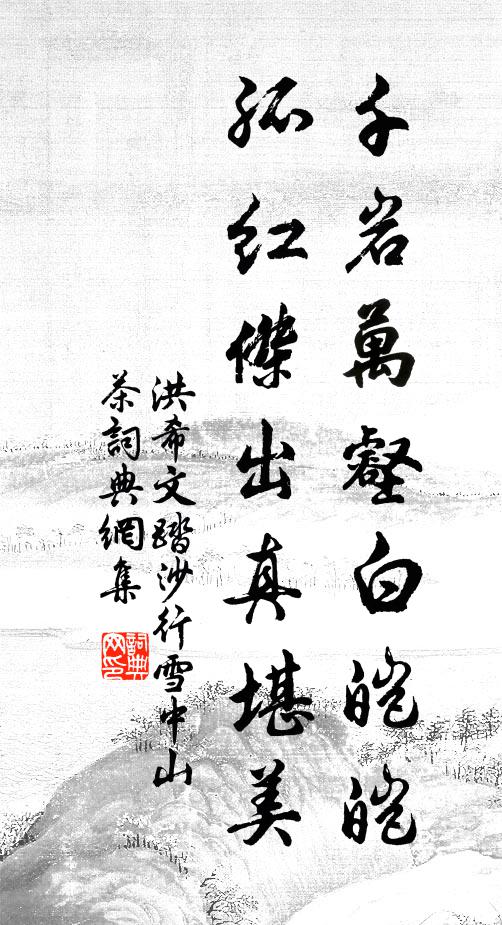 千岩萬壑白皚皚
孤紅傑出真堪美
洪希文踏沙行雪中山
茶詞典網集
詞典网印